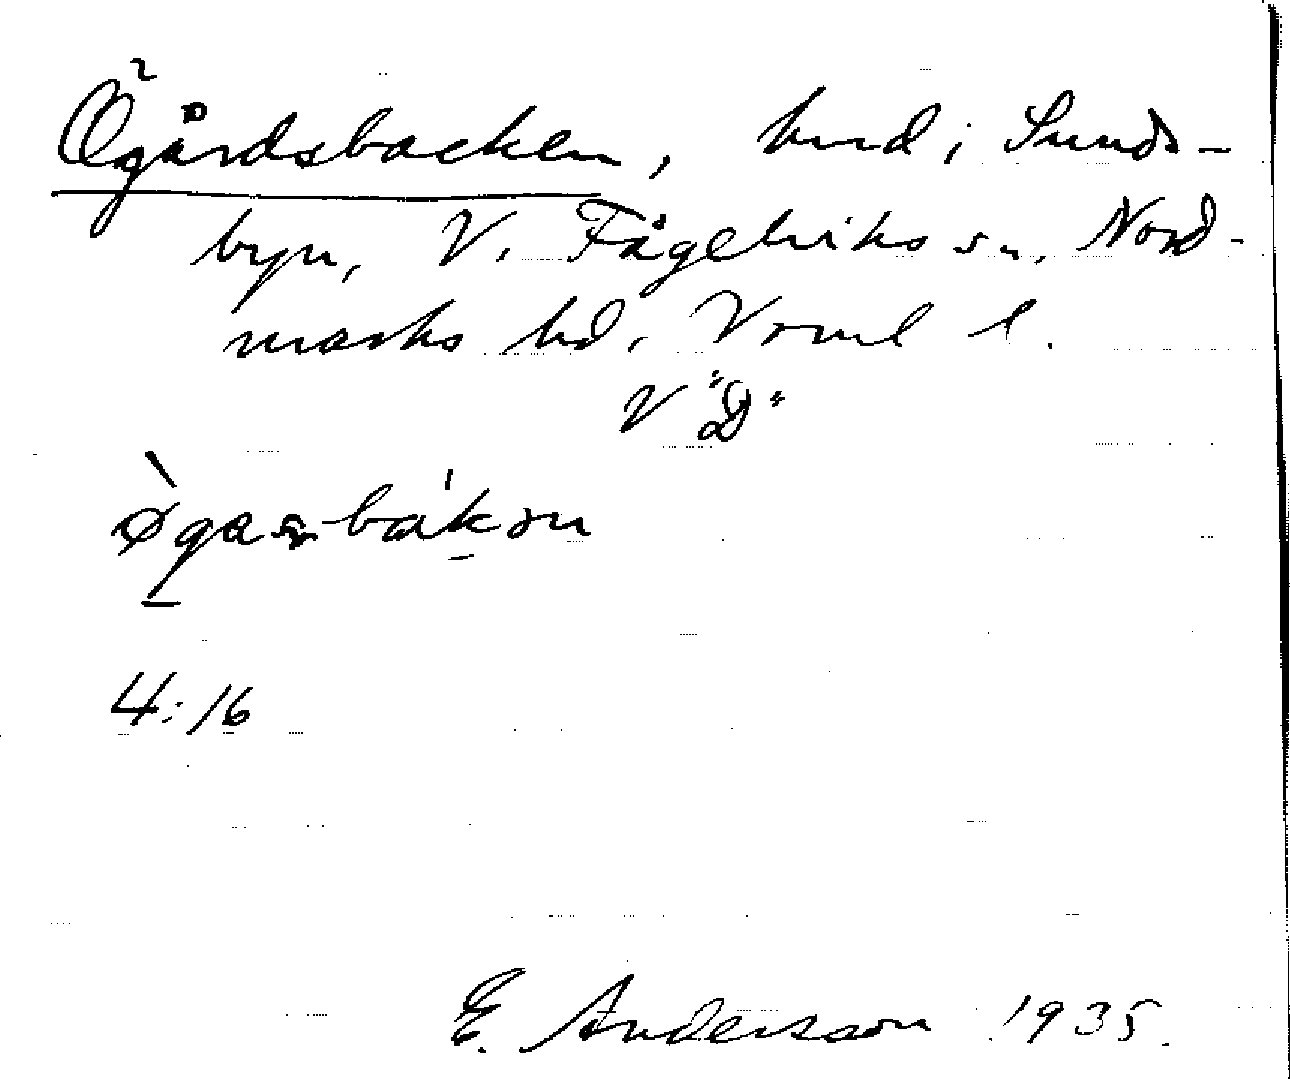 Ögårdsbacken, hmd i Sunds-
byn, V. Fågelviks sn, Nord-
marks hd, Vrml l.
V "D"
4:16
E. Andersson 1935.